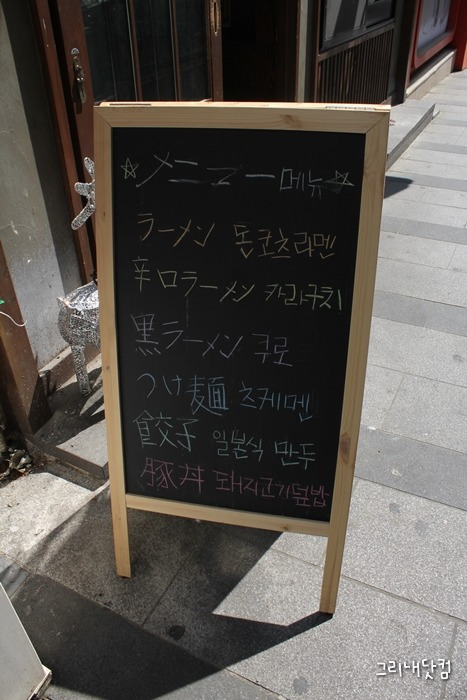 ☆メニュー 메뉴☆
ラーメン 돈코츠라멘
辛口ラーメン 카라구치
黒ラーメン 쿠로
つけ麺 츠케멘
餃子 일본식 만두
豚丼 돼지고기덮밥
그리내닷컴